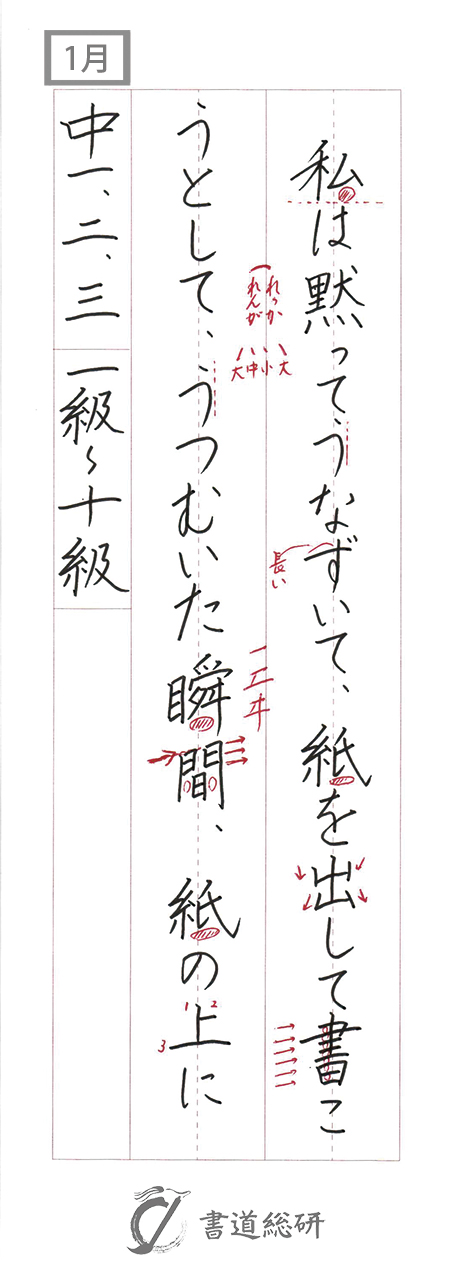 1月
私は黙ってうなずいて、紙を出して書こ
うとして、うつむいた瞬間、紙の上に
中一、二、三 一級〜十級
れっか
れんが
大小中大
長い
1 2
3
書道総研